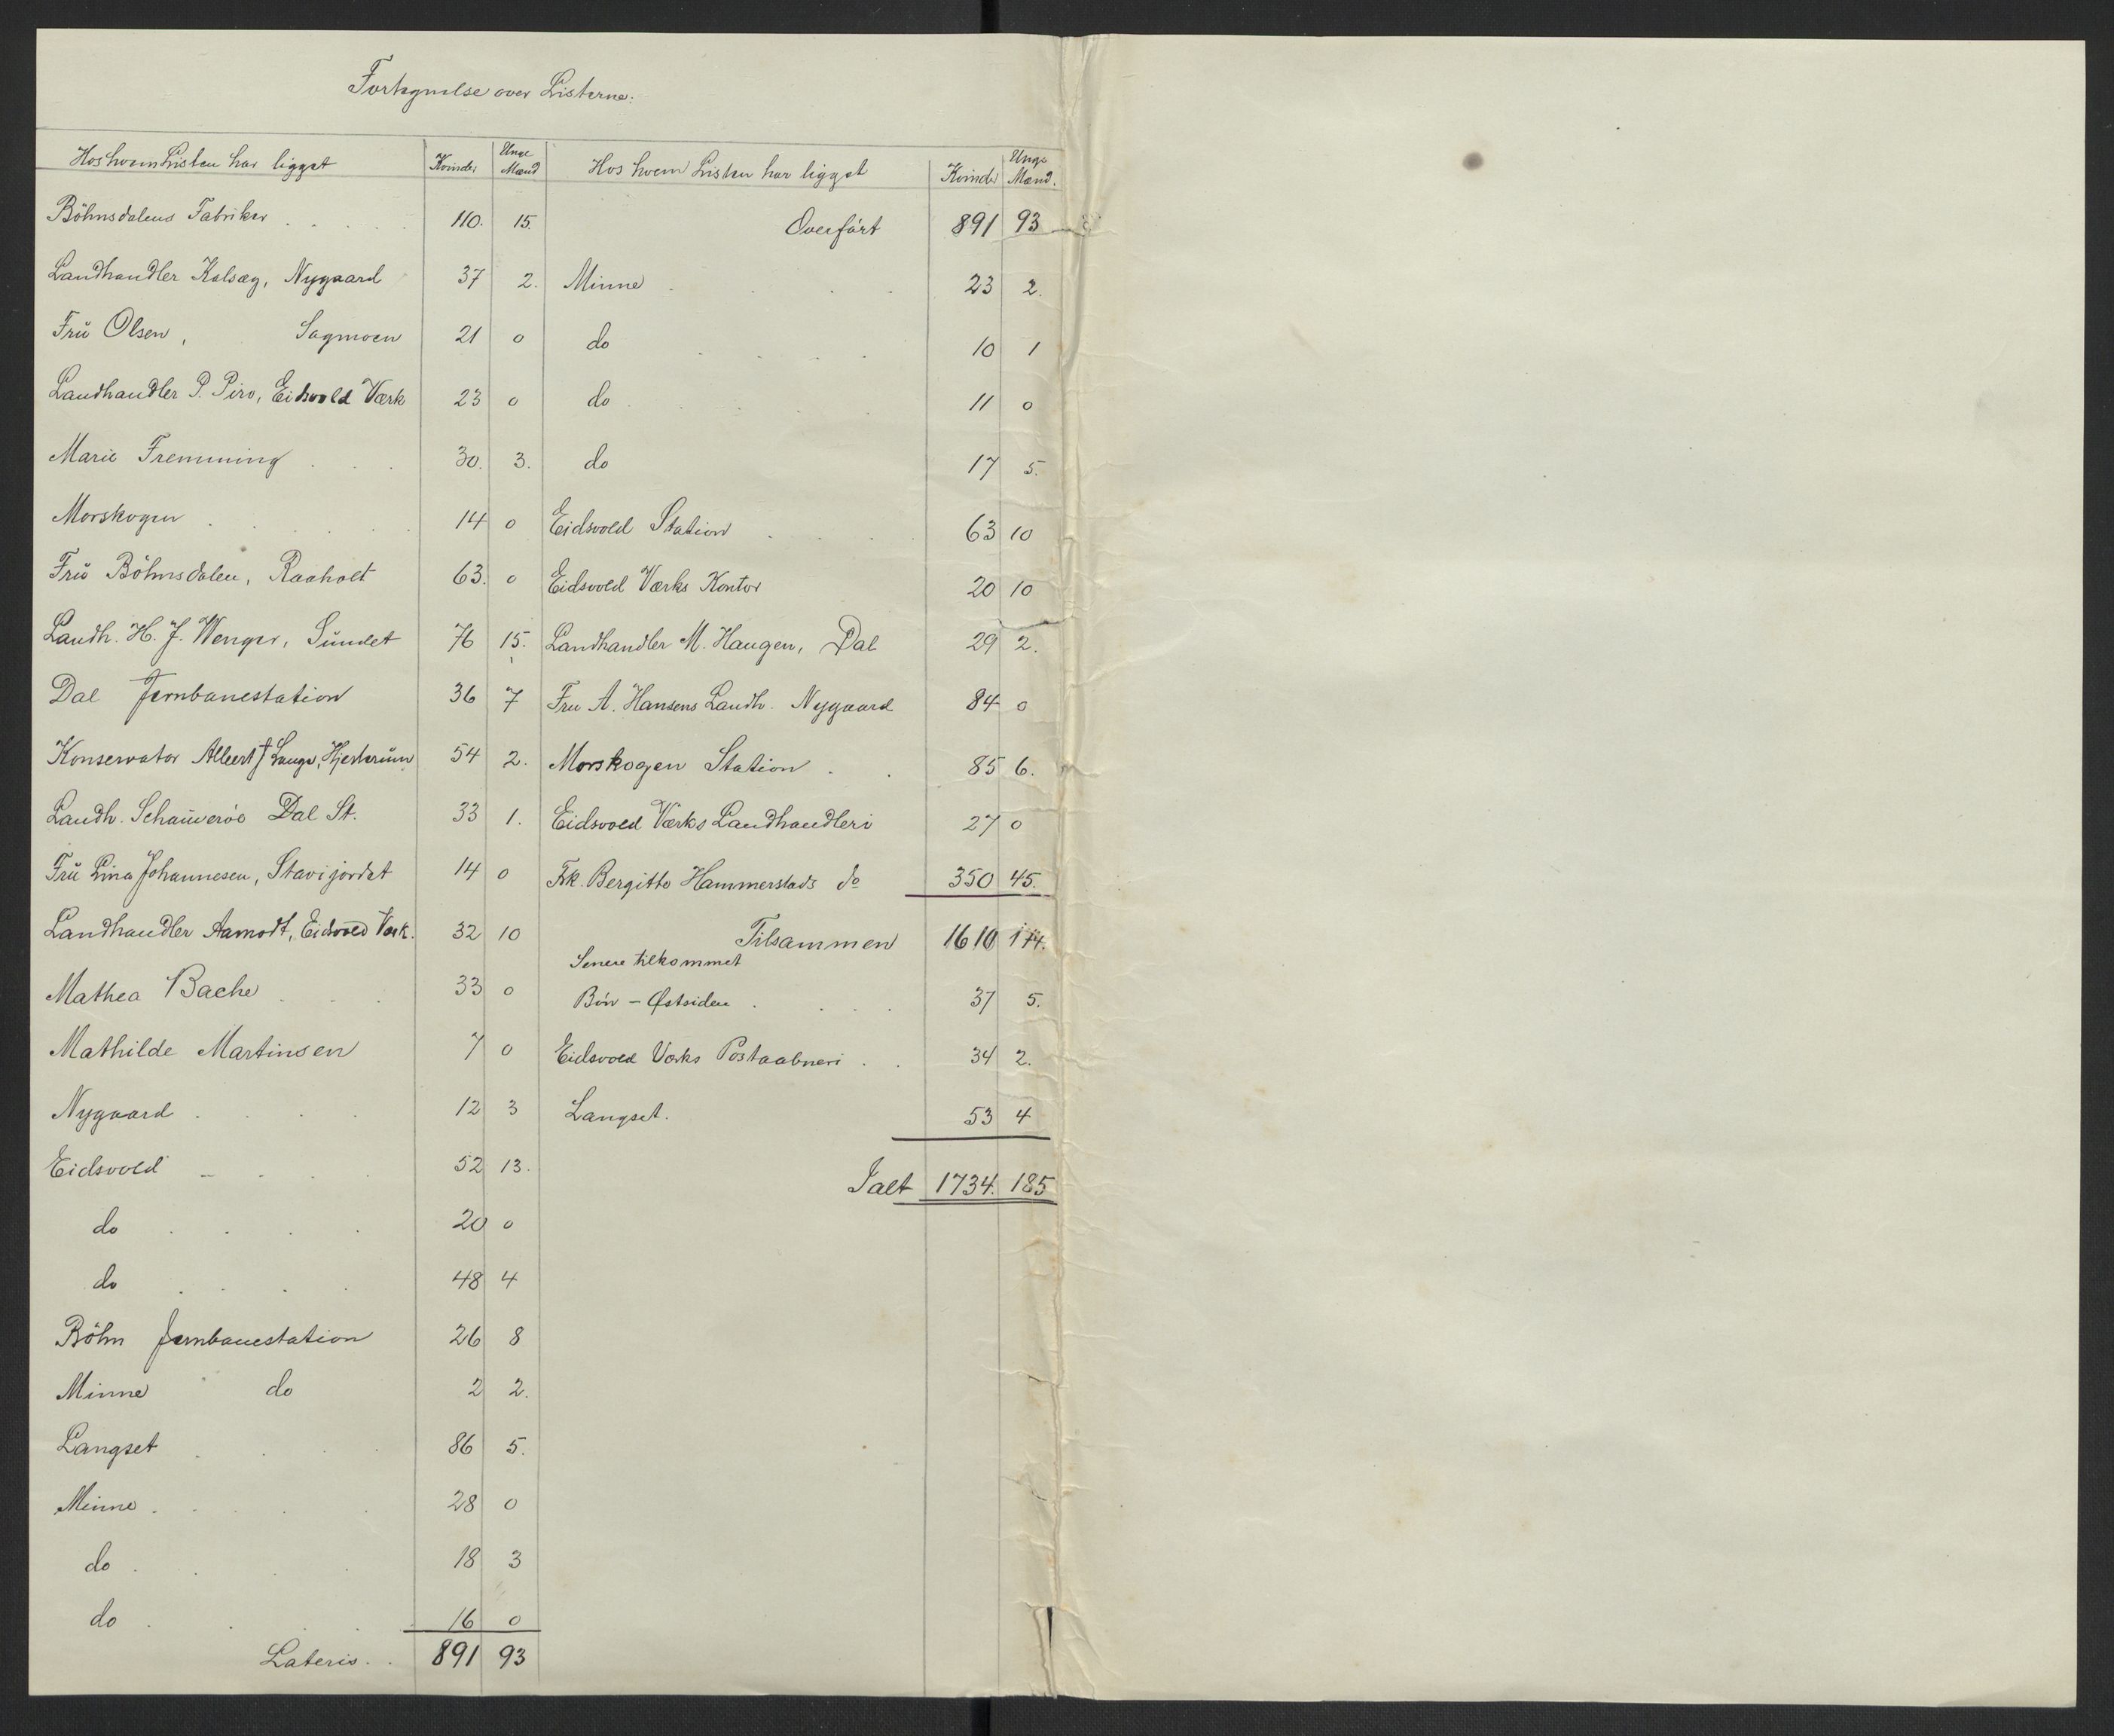 Fortegnelse over Listerne:
Hos hvem Listen har ligget Kvinder Unge Mænd
Böhnsdalens Fabriker 110. 15.
Landhandler Kolsæg, Nygaard 37 2.
Frü Olsen, Sagmoen 21 0
Landhandler P. Piro, Eidsvold Værk 23 0
Marie Fremming 30. 3.
Morskogen 14 0
Frü Böhnsdalen, Raaholt 63. 0
Landh. H. J. Wenger, Sündet 76 15.
Dal Jernbanestation 36 7
Konservator Albert Lange, Hjerterüm 54 2.
Landh. Schaüeröe Dal St. 33 1.
Frü Lina Johannesen, Stavijordet 14 0
Landhandler Aamodt, Eidsvold Værk. 32 10
Mathea Bache 33 0
Mathilde Martinsen 7 0
Nygaard 12 3
Eidsvold 52 13.
do 20 0
do 48 4
Böhn Jernbanestation 26 8
Minne do 2 2.
Langset 86 5.
Minne 28 0
do 18 3
do 16 0
Lateris 891 93
Hos hvem Listen har ligget Kvinder Unge Mænd.
Overfört 891 93
Minne 23 2.
do 10 1
do 11 0
do 17 5.
Eidsvold Station 63 10
Eidsvold Værks Kontor 20 10
Landhandler M. Haugen, Dal 29 2.
Fru A. Hansens Landh. Nygaard 84 0
Morskogen Station 85 6.
Eidsvold Værks Landhandleri 27 0
Frk. Bergitte Hammerstads do 350 45.
Tilsammen 1610 174.
Senere tilkommet
Bön - Østsiden 37 5.
Eidsvold Værks Postaabneri 34 2.
Langset. 53 4
Ialt 1734. 185